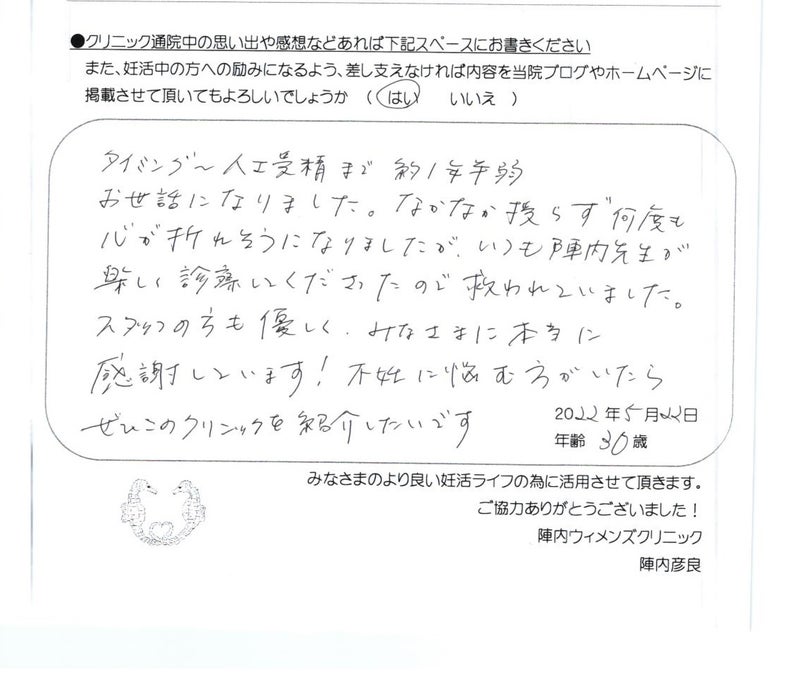 ●クリニック通院中の思い出や感想などあれば下記スペースにお書きください
また、妊活中の方への励みになるよう、差し支えなければ内容を当院ブログやホームページに
掲載させて頂いてもよろしいでしょうか （ はい いいえ ）
タイミング〜人工受精まで 約1年半弱
お世話になりました。なかなか授らず何度も
心が折れそうになりましたが、いつも陣内先生が
楽しく診療してくださったので救われていました。
スタッフの方も優しく、みなさまに本当に
感謝しています！不妊に悩む方がいたら
ぜひこのクリニックを紹介したいです
2022年5月22日
年齢 30歳
みなさまのより良い妊活ライフの為に活用させて頂きます。
ご協力ありがとうございました！
陣内ウィメンズクリニック
陣内彦良